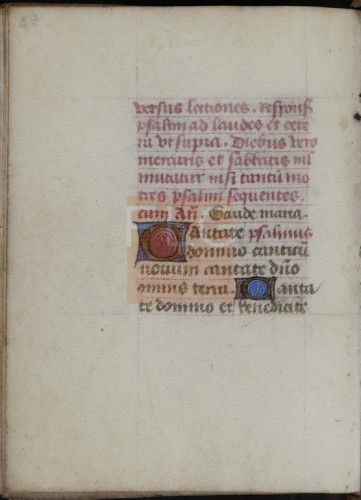 versus lectiones. Respons
psalmi ad laudes et cete
ra vt supra. Diebus vero
mercurii et sabbatis nil
mutatur nisi tantū mo
tres psalmi sequentes.
cum Añ. Gaude maria.
Cantate psalmus
domino canticū
novum cantate dño
omnis terra. Canta
te domino et benedicite